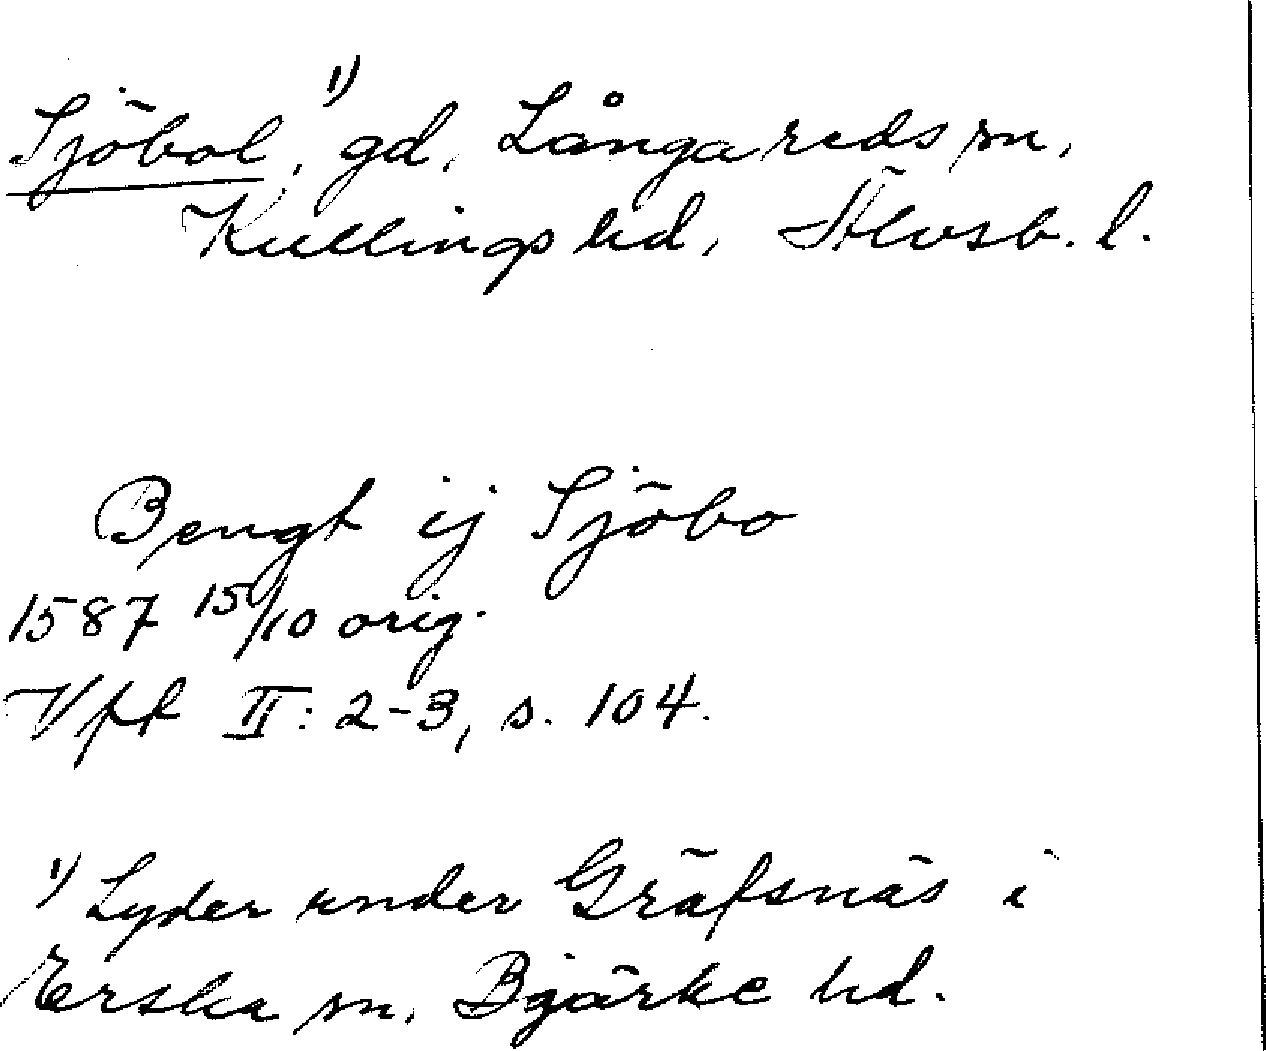 Sjöbol,¹⁾ gd, Långareds sn,
Kullings hd, Älvsb. l.
Bengt ij Sjöbo
1587 15/10 orig.
Vft II: 2-3, s. 104.
¹⁾ Lyder under Gräfsnäs i
Erska sn, Bjärke hd.